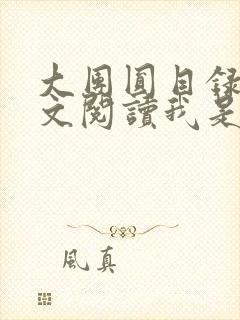 大團圓目錄
文閱讀我是
風真